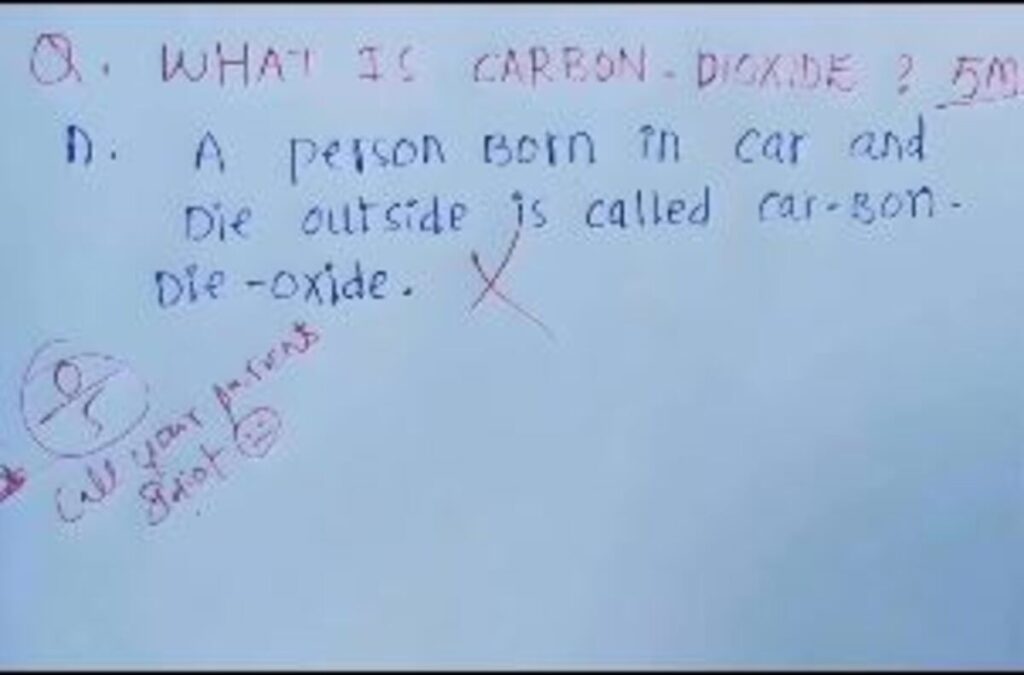 Q. WHAT IS CARBON-DIOXIDE ? 5M
A. A person Born in car and
Die outside is called car-Bon-
Die-oxide.
0/5
Call your parents
Idiot